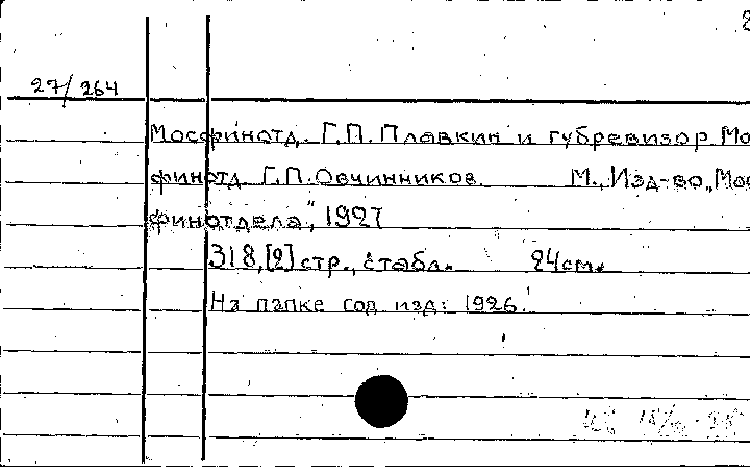 2
27/264
Мосфинотд. Г.П. Плавкин и губревизор Мо
финотд Г.П. Овчинников. М., Изд-во „Мос
финотдела", 1927
318, [2] стр., с табл. 24 см.
На папке год изд: 1926.